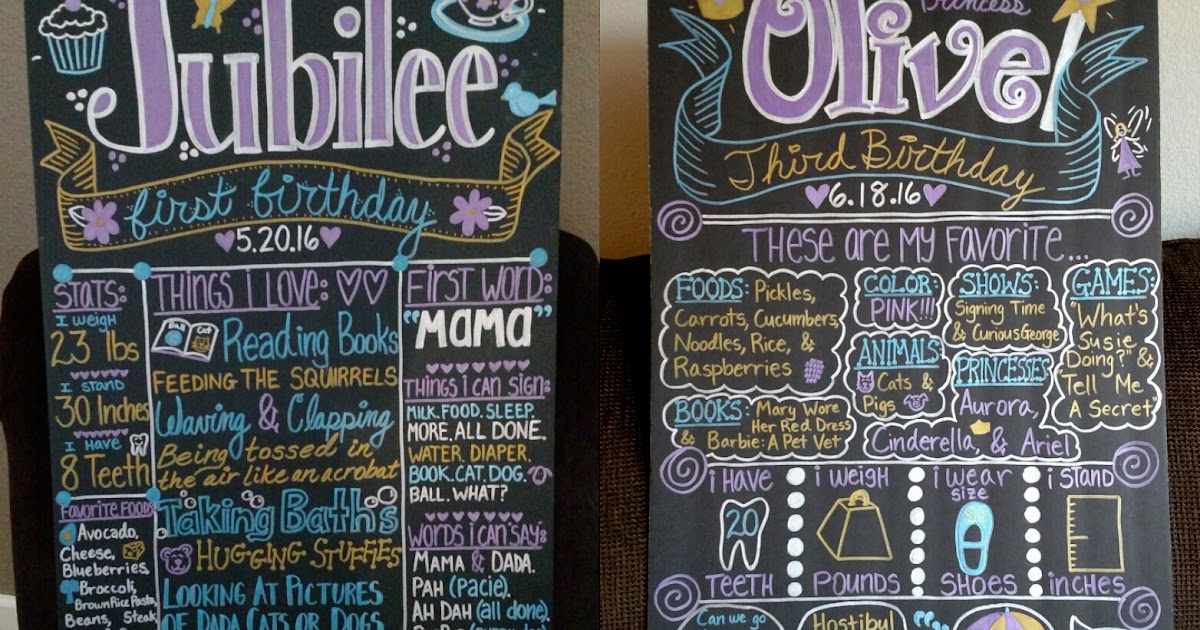 Jubilee
first birthday
5.20.16
STATS:
I WEIGH
23 lbs
I STAND
30 Inches
I HAVE
8 Teeth
FAVORITE FOODS
Avocado,
Cheese,
Blueberries,
Broccoli,
Brown Rice Pasta,
Beans, Steak,
THINGS i LOVE:
Ball Cat
Reading Books
FEEDING THE SQUIRRELS
Waving & Clapping
Being tossed in
the air like an acrobat
Taking Baths
HUGGING STUFFIES
LOOKING AT PICTURES
OF DADA, CATS OR DOGS
FIRST WORD:
"MAMA"
THINGS i CAN SIGN:
MILK. FOOD. SLEEP.
MORE. ALL DONE.
WATER. DIAPER.
BOOK. CAT. DOG.
BALL. WHAT?
WORDS i CAN SAY:
MAMA & DADA.
PAH (pacie).
AH DAH (all done).
Princess
Olive
Third Birthday
6.18.16
THESE are MY FAVORITE...
FOODS: Pickles,
Carrots, Cucumbers,
Noodles, Rice, &
Raspberries
COLOR:
PINK!!!
ANIMALS
Cats &
Pigs
SHOWS:
Signing Time
& Curious George
PRINCESSES
Aurora,
Cinderella, & Ariel
GAMES:
"What's
Susie
Doing?" &
"Tell Me
A Secret"
BOOKS: Mary Wore
Her Red Dress
& Barbie: A Pet Vet
i HAVE
20
TEETH
i WEIGH
POUNDS
i WEAR
size
SHOES
i STAND
inches
Can we go
Hostibul